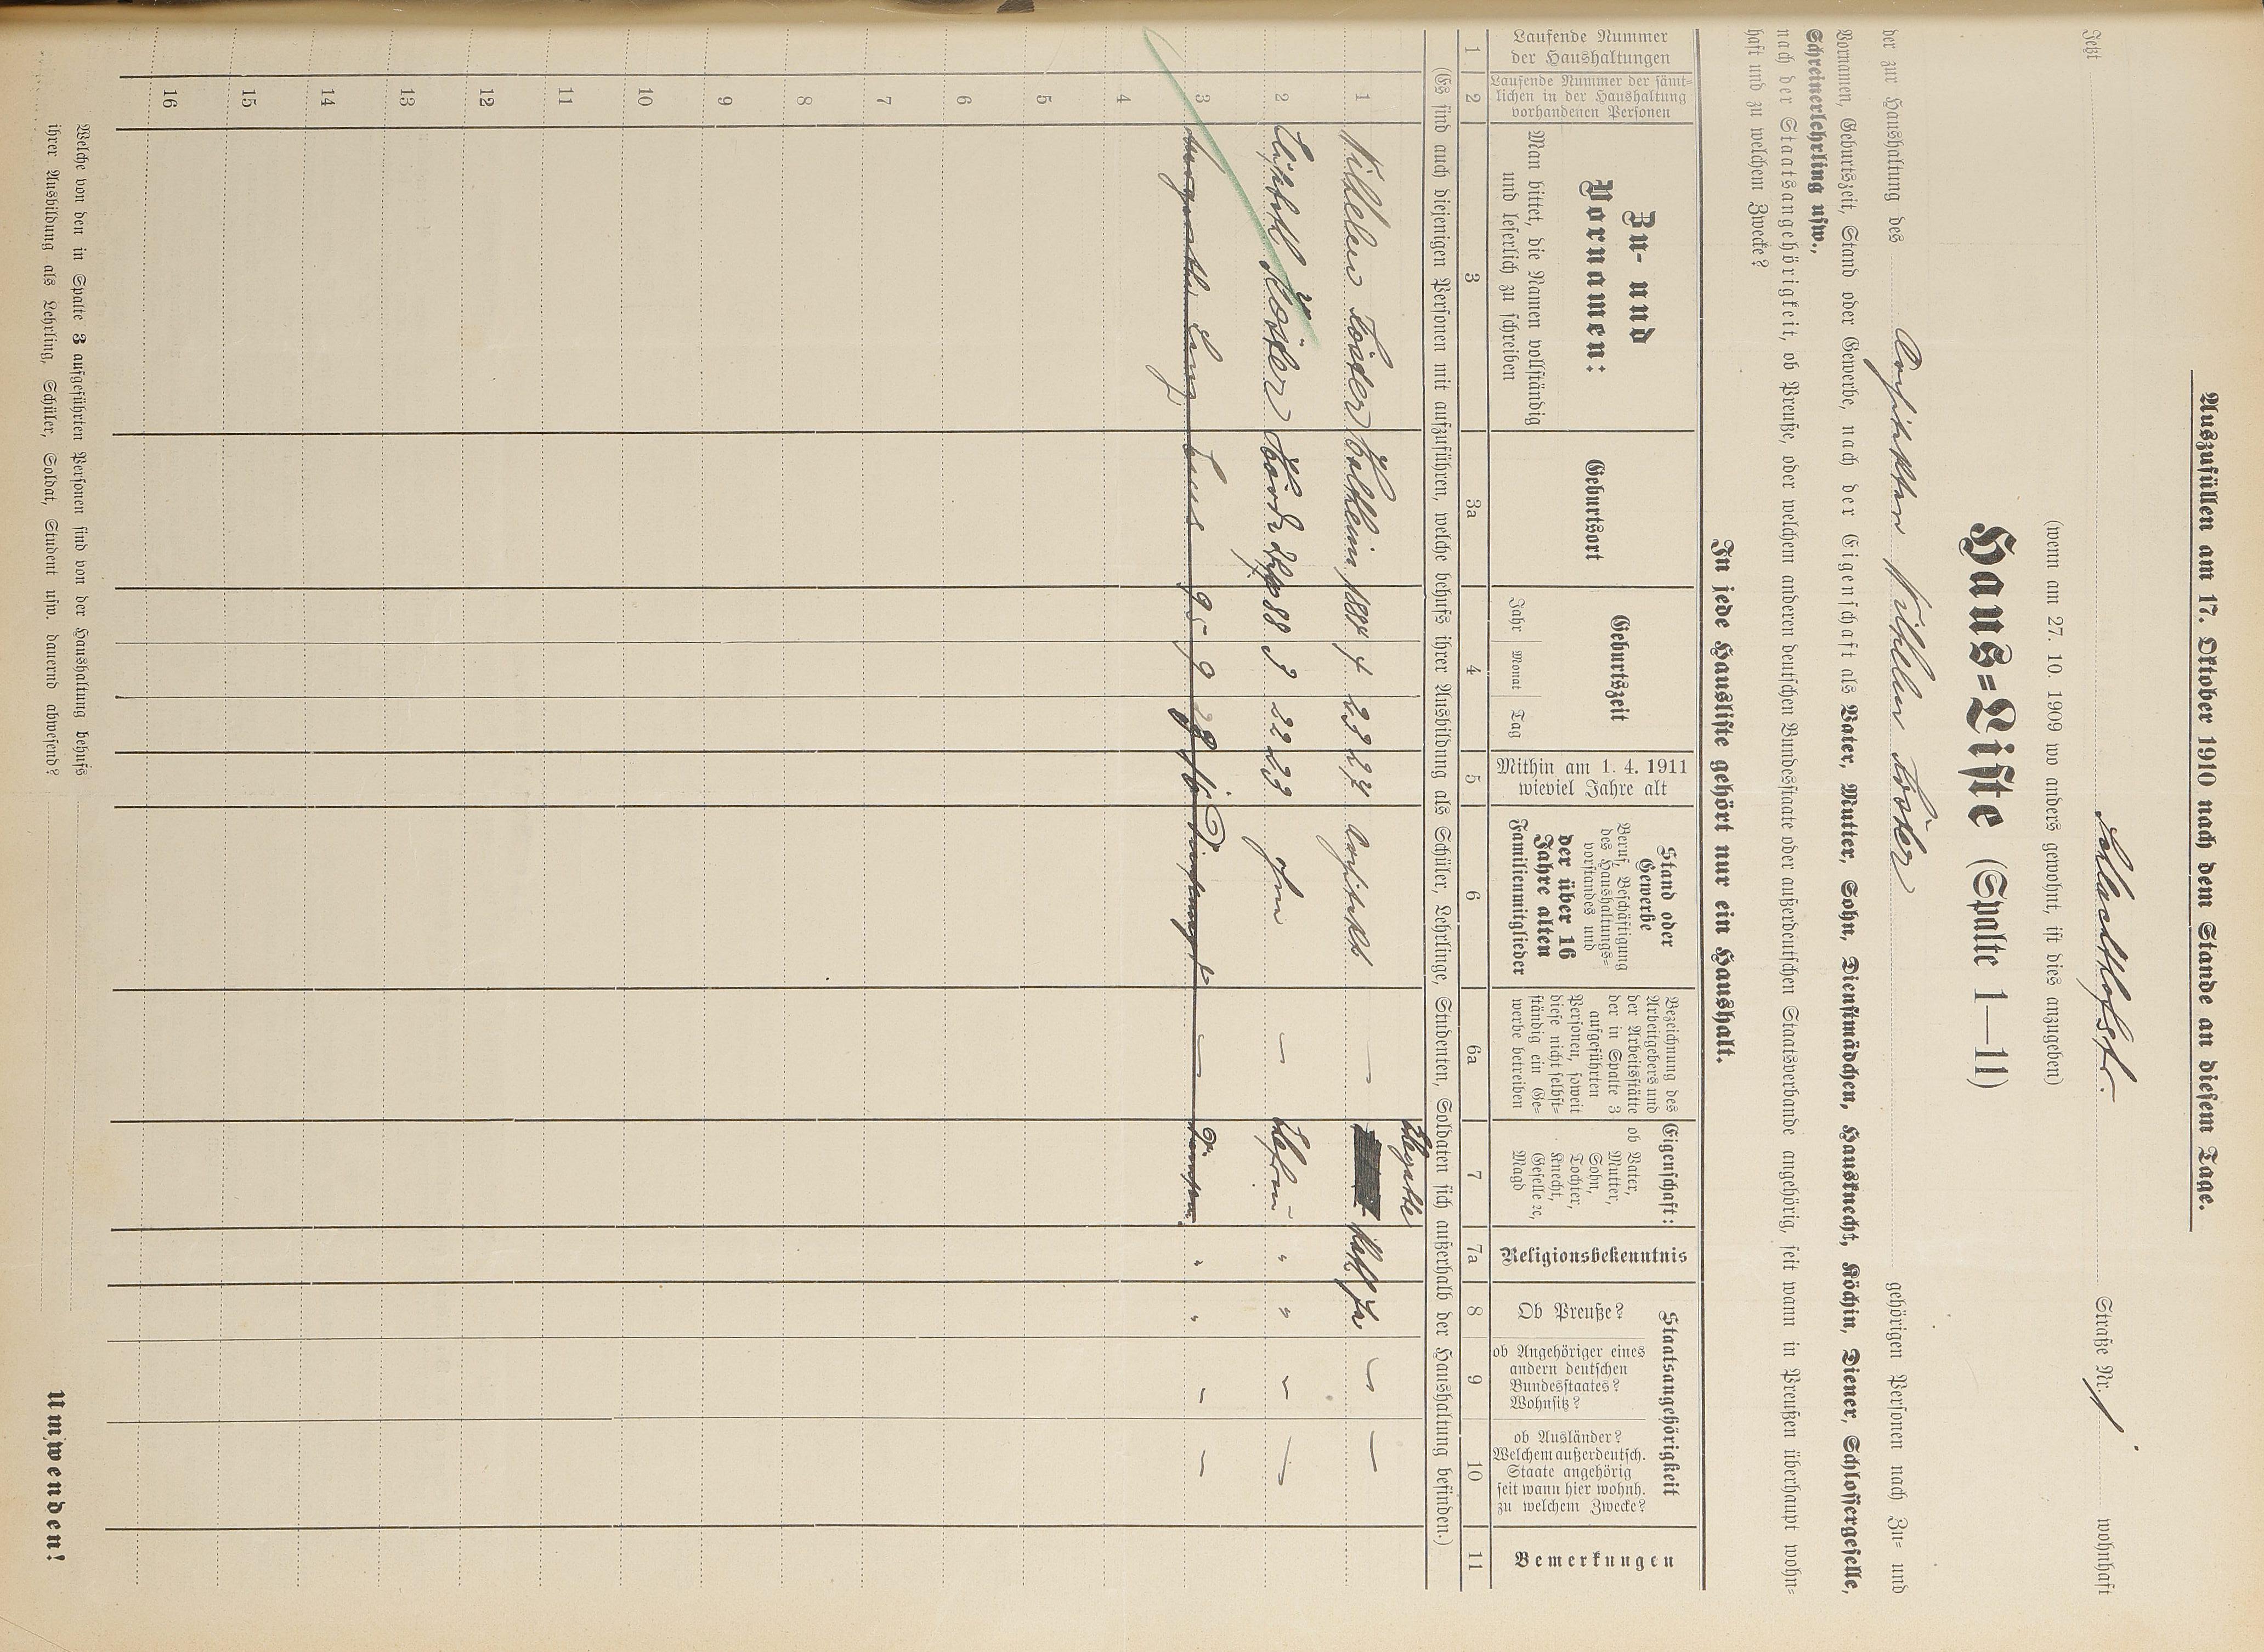 Auszufüllen am 17. Oktober 1910 nach dem Stande an diesem Tage.
Jetzt Schlachthofstr. Straße Nr. 1 wohnhaft
(wenn am 27. 10. 1909 wo anders gewohnt, ist dies anzugeben)
Haus=Liste (Spalte 1—11)
der zur Haushaltung des Architekten Wilhelm gehörigen Personen nach Zu= und
Vornamen, Geburtszeit, Stand oder Gewerbe, nach der Eigenschaft als Vater, Mutter, Sohn, Dienstmädchen, Hausknecht, Köchin, Diener, Schlossergeselle,
Schreinerlehrling usw.,
nach der Staatsangehörigkeit, ob Preuße, oder welchem anderen deutschen Bundesstaate oder außerdeutschen Staatsverbande angehörig, seit wann in Preußen überhaupt wohn=
haft und zu welchem Zwecke?
In jede Hausliste gehört nur ein Haushalt.
Laufende Nummer
der Haushaltungen
Laufende Nummer der sämt=
lichen in der Haushaltung
vorhandenen Personen
Zu- und
Vornamen:
Man bittet, die Namen vollständig
und leserlich zu schreiben
Geburtsort
Geburtszeit
Jahr Monat Tag
Mithin am 1. 4. 1911
wieviel Jahre alt
Stand oder
Gewerbe
Beruf, Beschäftigung
des Haushaltungs=
vorstandes und
der über 16
Jahre alten
Familienmitglieder
Bezeichnung des
Arbeitgebers und
der Arbeitsstätte
der in Spalte 3
aufgeführten
Personen, soweit
diese nicht selbst=
ständig ein Ge=
werbe betreiben
Eigenschaft:
ob Vater,
Mutter,
Sohn,
Tochter,
Knecht,
Geselle ꝛc,
Magd
Religionsbekenntnis
Staatsangehörigkeit
Ob Preuße?
ob Angehöriger eines
andern deutschen
Bundesstaates?
Wohnsitz?
ob Ausländer?
Welchem außerdeutsch.
Staate angehörig
seit wann hier wohnh.
zu welchem Zwecke?
Bemerkungen
1 2 3 3a 4 5 6 6a 7 7a 8 9 10 11
(Es sind auch diejenigen Personen mit aufzuführen, welche behufs ihrer Ausbildung als Schüler, Lehrlinge, Studenten, Soldaten sich außerhalb der Haushaltung befinden.)
Ehegatte
1 Wilhelm 1884 4 23 27 Architekt — kath. Ja — —
2 88 3 22 23 ohne — Ehefrau " " — —
3 95 9 28 15 — " " — —
4
5
6
7
8
9
10
11
12
13
14
15
16
Welche von den in Spalte 3 aufgeführten Personen sind von der Haushaltung behufs
ihrer Ausbildung als Lehrling, Schüler, Soldat, Student usw. dauernd abwesend?
Umwenden!